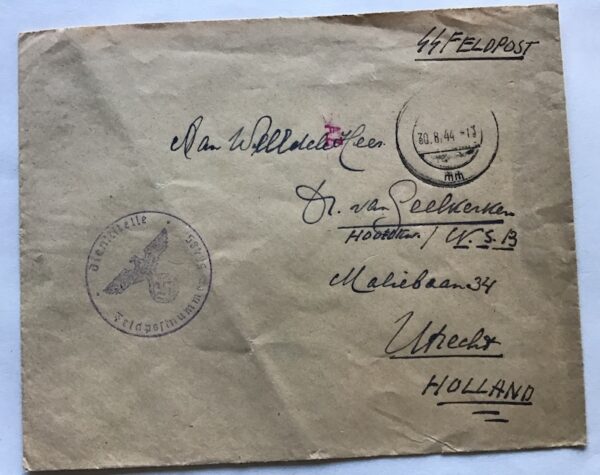 SS FELDPOST
30.8.44
Aan
Heer
Dr. van Geelkerken
N.S.B
Maliebaan 34
Utrecht
HOLLAND
Dienststelle
Feldpostnummer